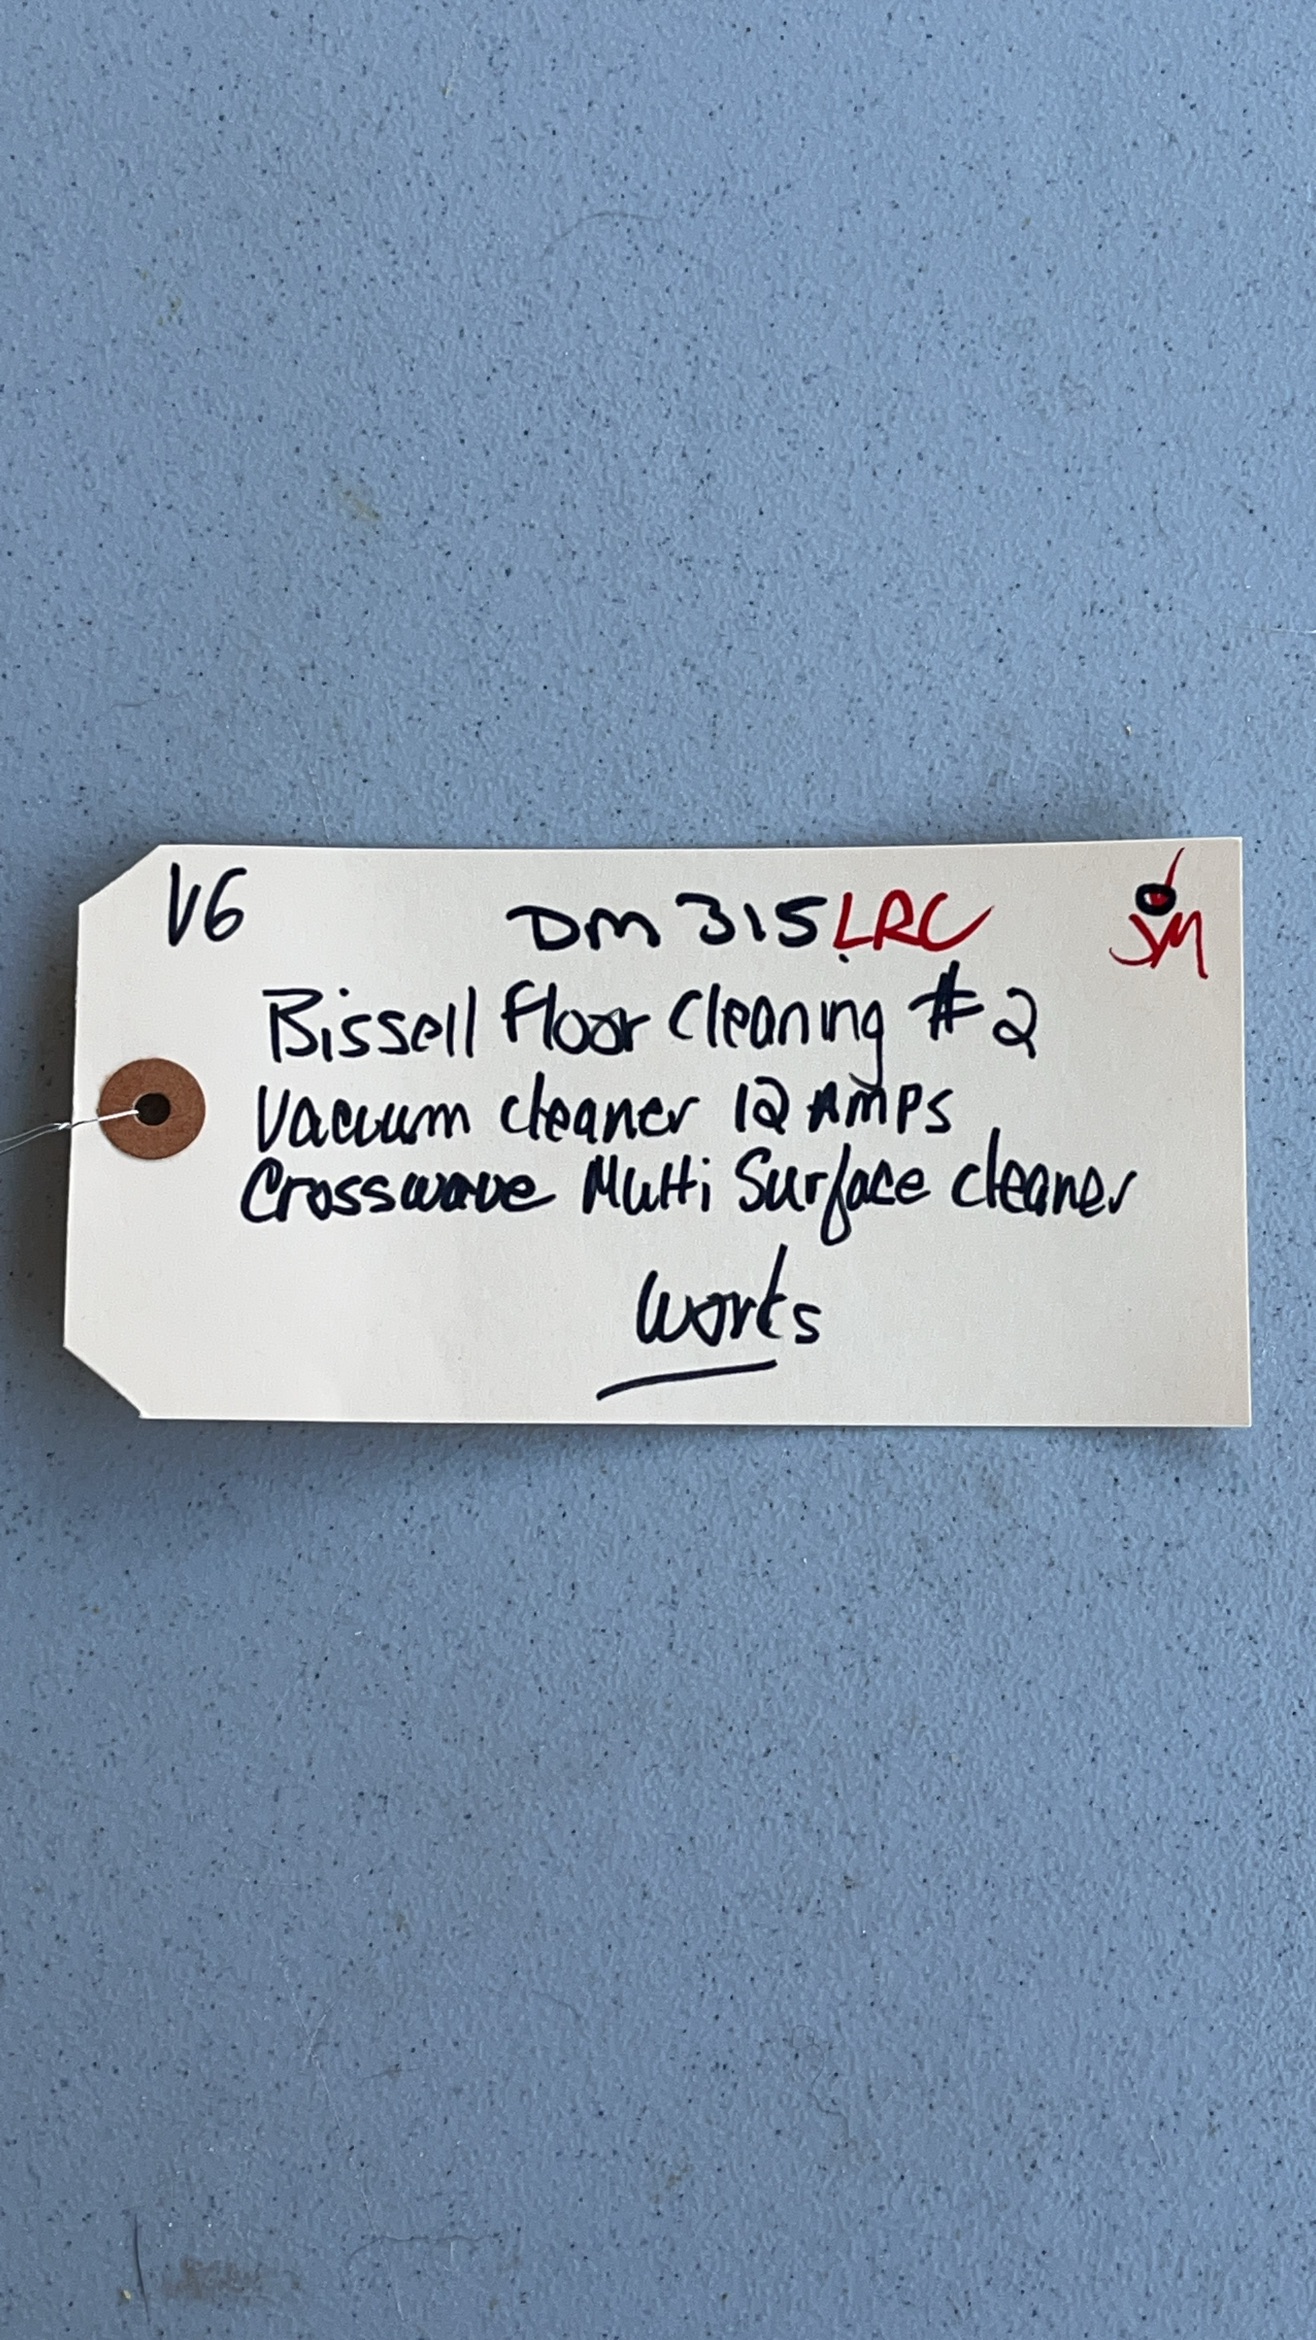 V6 DM 315 LRC JM
Bissell Floor Cleaning #2
Vacuum cleaner 12 AMPS
Crosswave Multi Surface cleaner
works